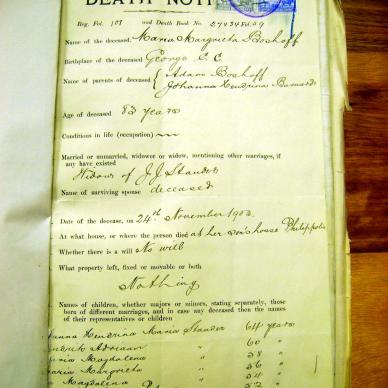 DEATH NOTI
Reg. Fol. 101 and Death Book No. 27434
Name of the deceased Maria Margrieta Boshoff
Birthplace of the deceased George C.C.
Name of parents of deceased { Adam Boshoff
Johanna Hendrina Barnard
Age of deceased 83 years
Conditions in life (occupation)
Married or unmarried, widower or widow, mentioning other marriages, if
any have existed
Widow of J J Stander
Name of surviving spouse deceased
Date of the decease, on 24th November 1903.
At what house, or where the person died at her son's house Philippolis
Whether there is a will No will
What property left, fixed or movable or both
Nothing
Names of children, whether majors or minors, stating separately, those
born of different marriages, and in case any deceased then the names
of their representatives or children
anna Hendrina Maria Stander 64 years
drik Adriaan " 60 "
ria Magdalena " 58 "
aria Margrieta " 56 "
Magdalena 54 "
52 "